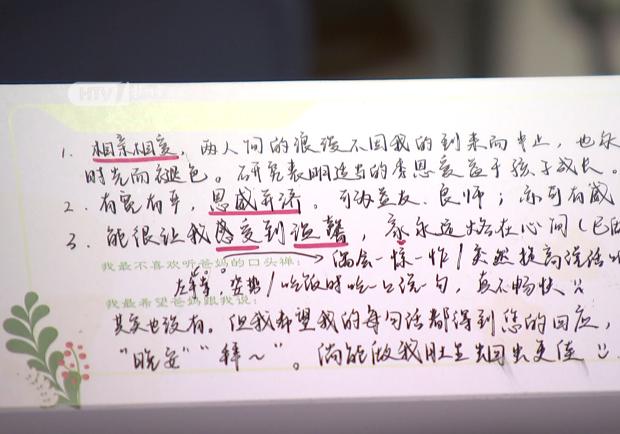 HTV
1. 相亲相爱，两人间的浪漫不因我的到来而中止，也
时光而褪色。研究表明适当的秀恩爱益于孩子成长。
2. 有宽有严，恩威并济。可为益友、良师；亦可有威
3. 能很让我感受到温馨，家永远烙在心间（已
我最不喜欢听爸妈的口头禅：偶尔一惊一乍/突然提高说话
姿势/吃饭时吃一口说一句，真不畅快
我最希望爸妈跟我说：
其实也没有。但我希望我的每句话都得到您的回应，
“晚安”“拜～”。倘能做我肚里蛔虫更佳